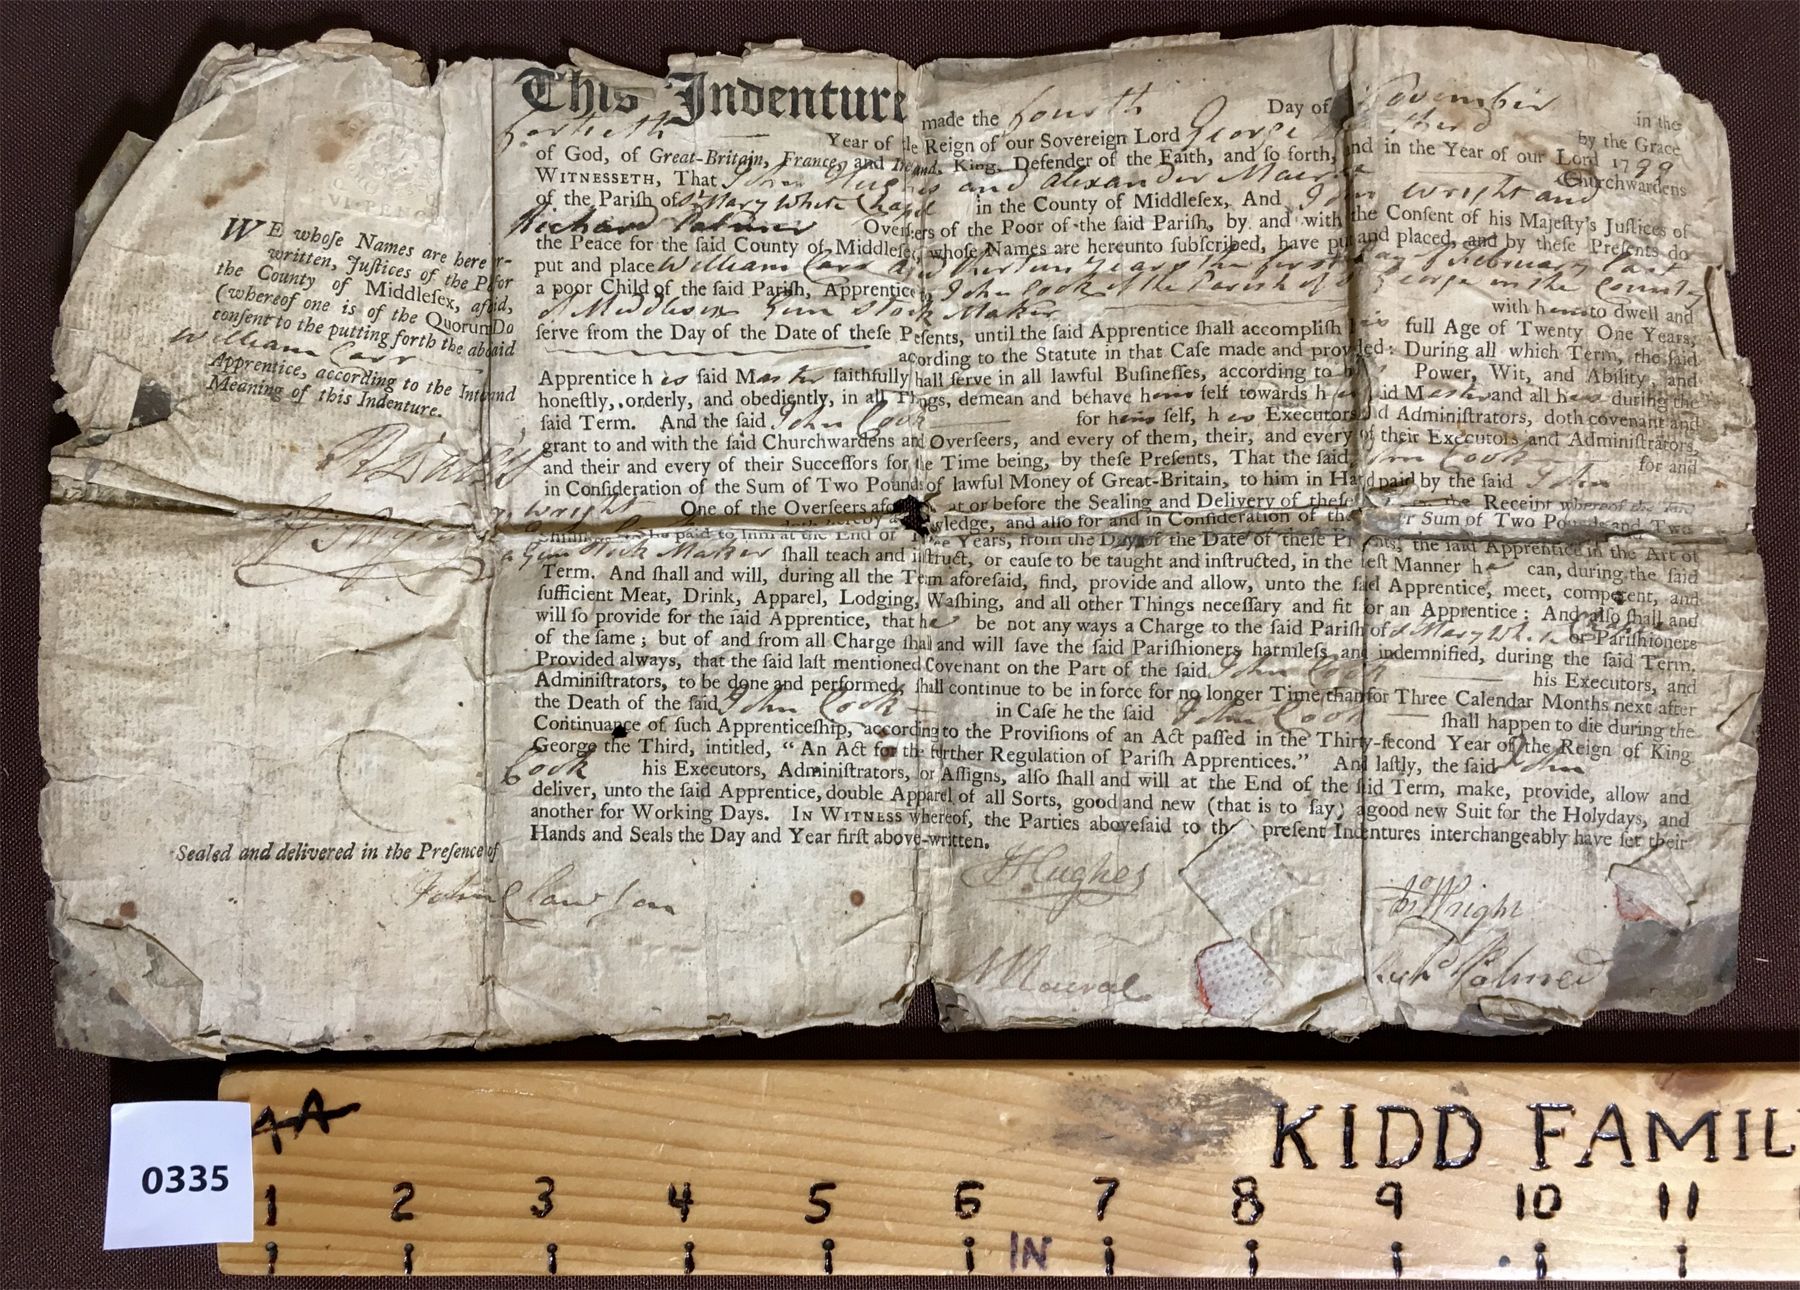 This Indenture made the fourth Day of November in the
fortieth Year of the Reign of our Sovereign Lord George the third by the Grace
of God, of Great-Britain, France, and Ireland, King, Defender of the Faith, and ſo forth, and in the Year of our Lord 1799
WITNESSETH, That John Hughes and Alexander Churchwardens
of the Pariſh of St Mary White Chapel in the County of Middleſex, And John Wright and
Richard Palmer Overſeers of the Poor of the ſaid Pariſh, by and with the Conſent of his Majeſty's Juſtices of
the Peace for the ſaid County of Middleſex, whoſe Names are hereunto ſubſcribed, have put and placed, and by theſe Preſents do
put and place William Carr years the first day of February last
a poor Child of the ſaid Pariſh, Apprentice to John Cook of the Parish of St George in the County
of Middlesex Gun Stock Maker with him to dwell and
ſerve from the Day of the Date of theſe Preſents, until the ſaid Apprentice ſhall accompliſh his full Age of Twenty One Years,
according to the Statute in that Caſe made and provided: During all which Term, the ſaid
Apprentice his ſaid Master faithfully ſhall ſerve in all lawful Buſineſſes, according to his Power, Wit, and Ability, and
honeſtly, orderly, and obediently, in all Things, demean and behave himself towards his ſaid Master and all his during the
ſaid Term. And the ſaid John Cook for himself, his Executors and Adminiſtrators, doth covenant and
grant to and with the ſaid Churchwardens and Overſeers, and every of them, their, and every of their Executors and Adminiſtrators,
and their and every of their Succeſſors for the Time being, by theſe Preſents, That the ſaid John Cook for and
in Conſideration of the Sum of Two Pounds of lawful Money of Great-Britain, to him in Hand paid by the ſaid John
Wright One of the Overſeers at or before the Sealing and Delivery of theſe the Receipt whereof the ſaid
doth hereby and alſo for and in Conſideration of the Sum of Two Pounds and Two
to be paid to him at the End of Years, from the Day of the Date of theſe Preſents, the ſaid Apprentice in the Art of
a Gun Stock Maker ſhall teach and inſtruct, or cauſe to be taught and inſtructed, in the beſt Manner he can, during the ſaid
Term. And ſhall and will, during all the Term aforeſaid, find, provide and allow, unto the ſaid Apprentice, meet, competent, and
ſufficient Meat, Drink, Apparel, Lodging, Waſhing, and all other Things neceſſary and fit for an Apprentice: And alſo ſhall and
will ſo provide for the ſaid Apprentice, that he be not any ways a Charge to the ſaid Pariſh of St Mary White or Pariſhioners
of the ſame; but of and from all Charge ſhall and will ſave the ſaid Pariſhioners harmleſs and indemnified, during the ſaid Term.
Provided always, that the ſaid laſt mentioned Covenant on the Part of the ſaid John Cook his Executors, and
Adminiſtrators, to be done and performed, ſhall continue to be in force for no longer Time than for Three Calendar Months next after
the Death of the ſaid John Cook in Caſe he the ſaid John Cook ſhall happen to die during the
Continuance of ſuch Apprenticeſhip, according to the Proviſions of an Act paſſed in the Thirty-ſecond Year of the Reign of King
George the Third, intitled, "An Act for the further Regulation of Pariſh Apprentices." And laſtly, the ſaid John
Cook his Executors, Adminiſtrators, or Aſſigns, alſo ſhall and will at the End of the ſaid Term, make, provide, allow and
deliver, unto the ſaid Apprentice, double Apparel of all Sorts, good and new (that is to ſay) a good new Suit for the Holydays, and
another for Working Days. IN WITNESS whereof, the Parties aboveſaid to preſent Indentures interchangeably have ſet their
Hands and Seals the Day and Year firſt above-written.
VI PENCE
WE whoſe Names are
written, Juſtices of the
the County of Middleſex,
(whereof one is of the Quorum Do
conſent to the putting forth the
William Carr
Apprentice, according to the and
Meaning of this Indenture.
Sealed and delivered in the Preſence of
John Clawson
J Hughes
Jno Wright
Richd Palmer
0335
KIDD FAMIL
1 2 3 4 5 6 7 8 9 10 11
IN